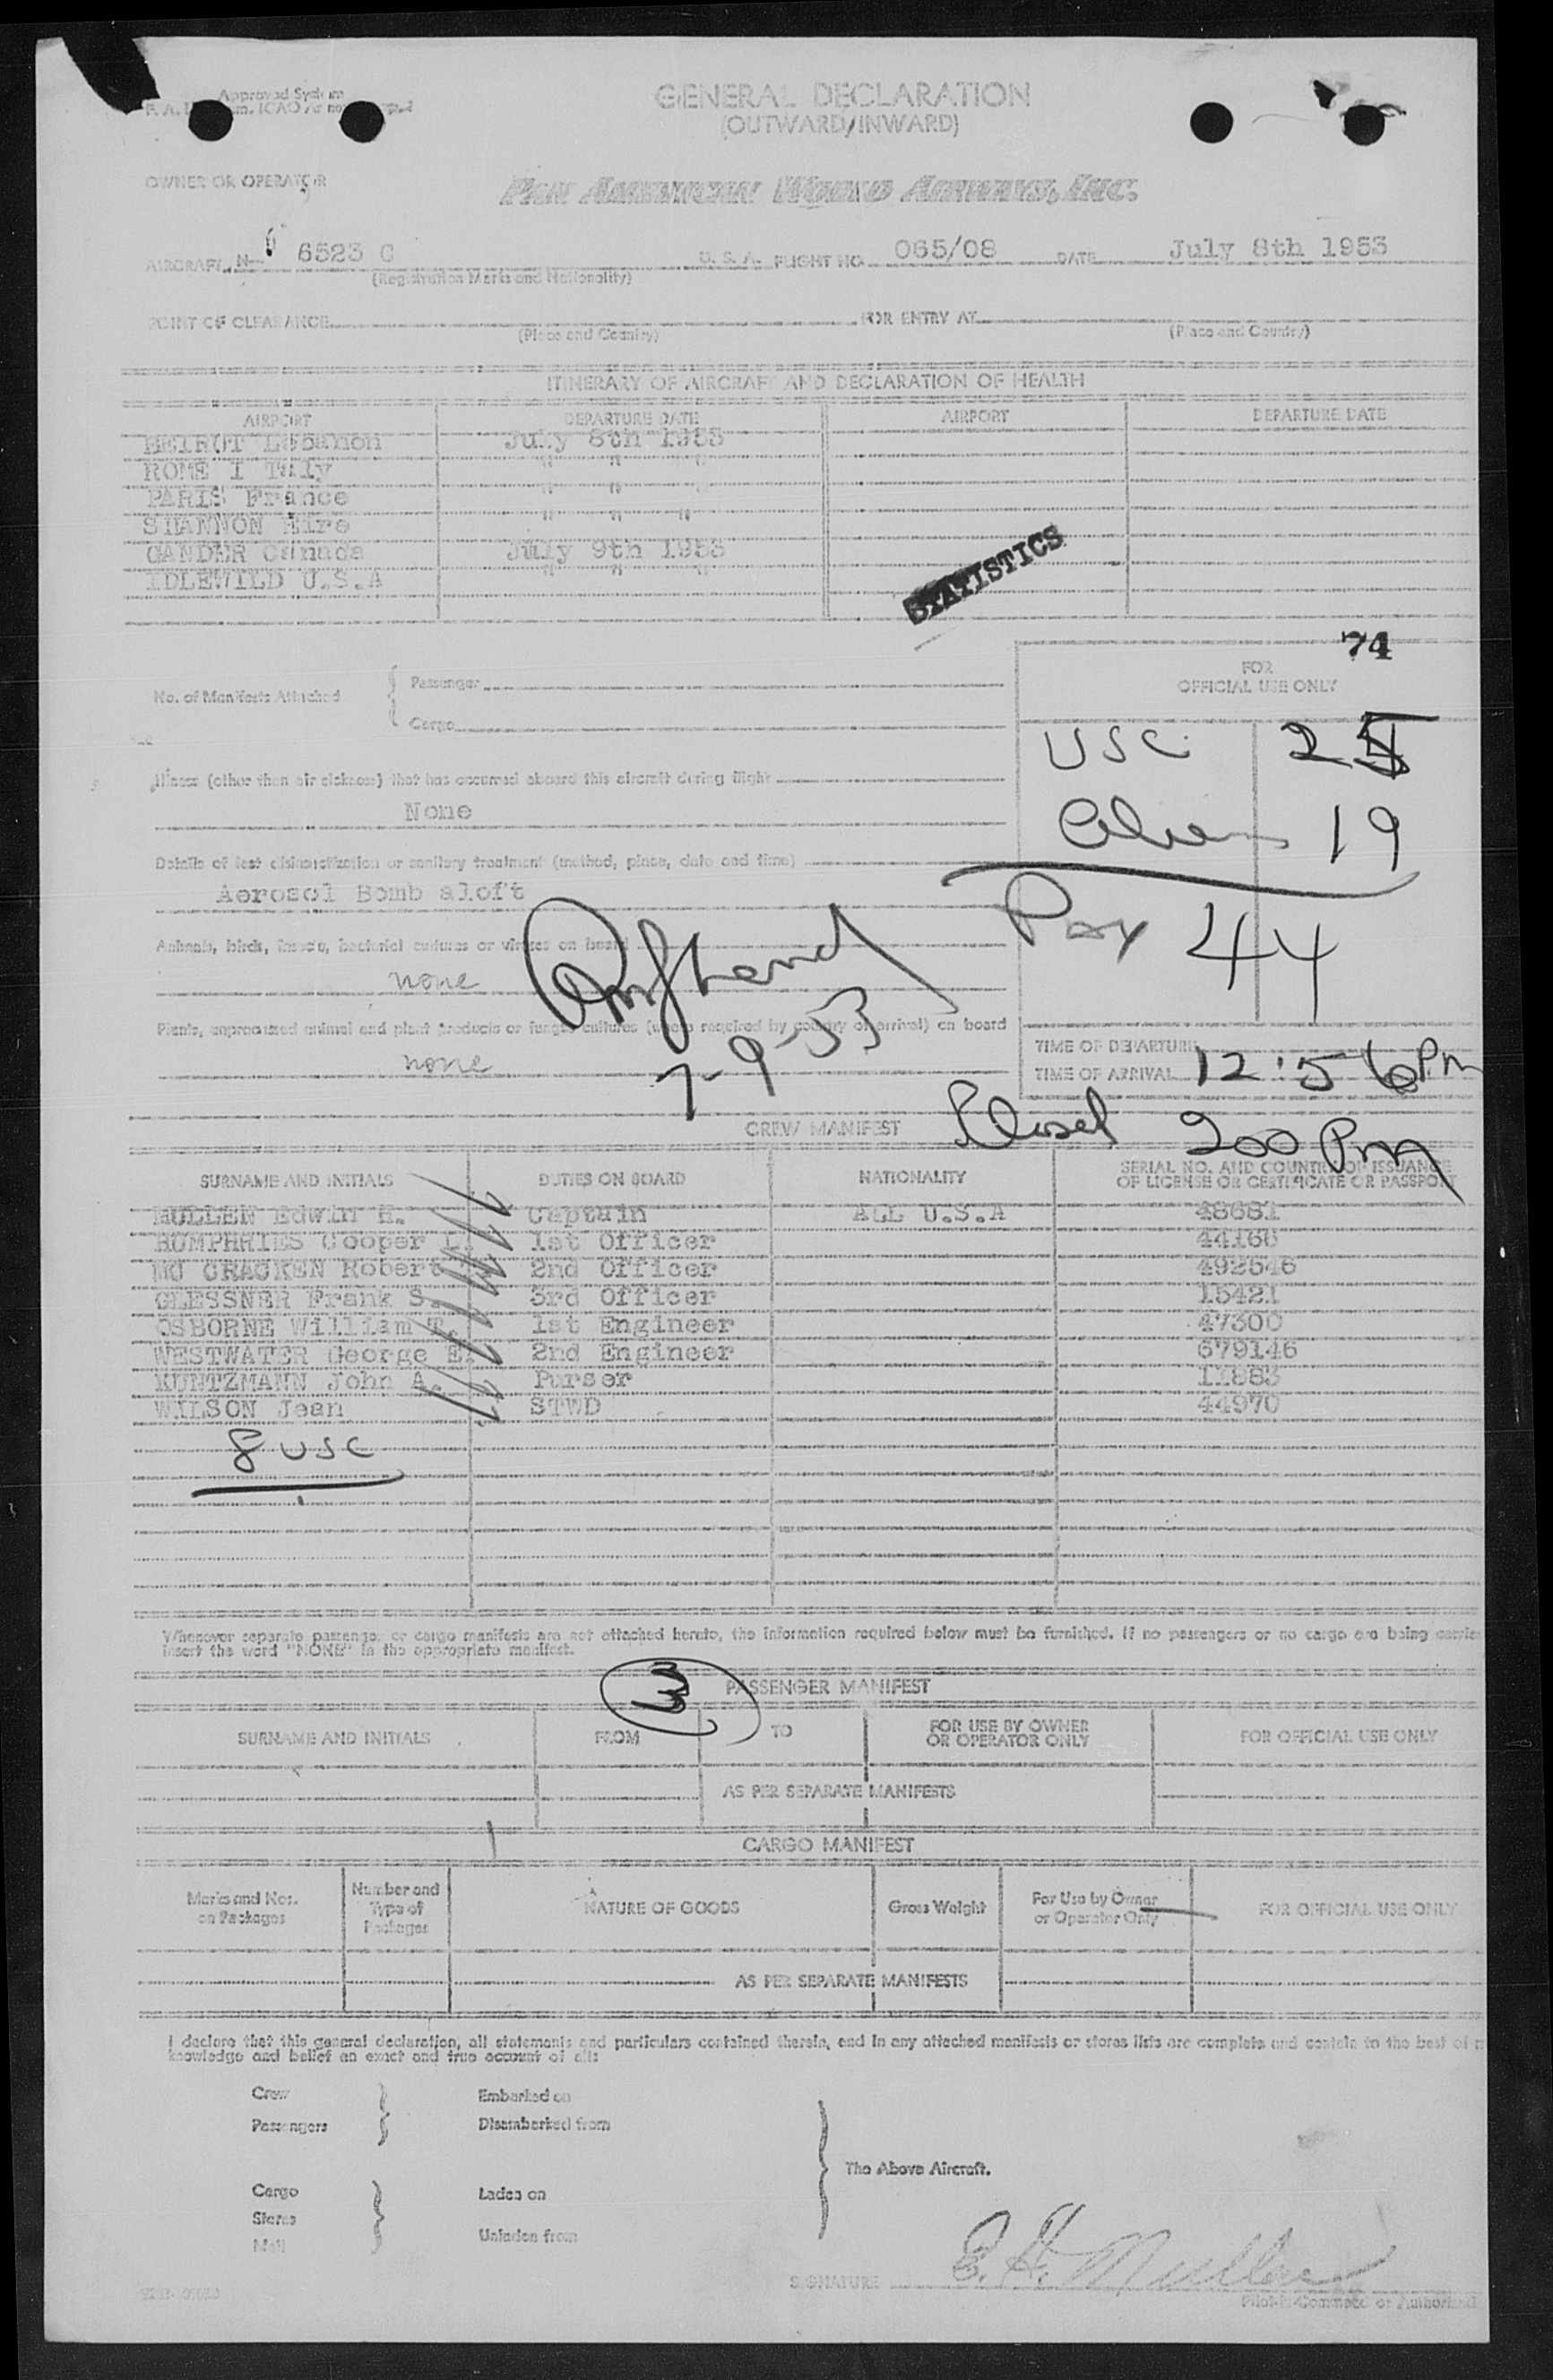 Approved System
GENERAL DECLARATION
(OUTWARD/INWARD)
OWNER OR OPERATOR
PAN AMERICAN WORLD AIRWAYS, INC.
AIRCRAFT N- 6523 C U. S. A. FLIGHT NO. 065/08 DATE July 8th 1953
(Registration Marks and Nationality)
POINT OF CLEARANCE FOR ENTRY AT
(Place and Country) (Place and Country)
ITINERARY OF AIRCRAFT AND DECLARATION OF HEALTH
AIRPORT DEPARTURE DATE AIRPORT DEPARTURE DATE
BEIRUT Lebanon July 8th 1953
ROME I Taly " " "
PARIS France " " "
SHANNON Eire " " "
GANDER Canada July 9th 1953
IDLEWILD U.S.A " " "
STATISTICS
74
FOR
OFFICIAL USE ONLY
No. of Manifests Attached
Passenger
Cargo
USC 25
Alien 19
Pax 44
Illness (other than air sickness) that has occurred aboard this aircraft during flight
None
Details of last disinsectization or sanitary treatment (method, place, date and time)
Aerosol Bomb aloft
Animals, birds, insects, bacterial cultures or viruses on board
none
Plants, unprocessed animal and plant products or fungus cultures (where required by country of arrival) on board
none
7-9-53
TIME OF DEPARTURE
TIME OF ARRIVAL 12:56 Pm
Closed 200 Pm
CREW MANIFEST
SURNAME AND INITIALS DUTIES ON BOARD NATIONALITY SERIAL NO. AND COUNTRY OF ISSUANCE
OF LICENSE OR CERTIFICATE OR PASSPORT
MULLER Edwin H. Captain ALL U.S.A 48681
HUMPHRIES Cooper L. 1st Officer 44166
MC CRACKEN Robert 2nd Officer 492646
GLESSNER Frank S. 3rd Officer 15421
OSBORNE William T. 1st Engineer 47300
WESTWATER George E. 2nd Engineer 679146
KUNTZMANN John A. Purser 11883
WILSON Jean STWD 44970
8 USC
Whenever separate passenger or cargo manifests are not attached hereto, the information required below must be furnished. If no passengers or no cargo are being carried
insert the word "NONE" in the appropriate manifest.
3
PASSENGER MANIFEST
SURNAME AND INITIALS FROM TO FOR USE BY OWNER
OR OPERATOR ONLY FOR OFFICIAL USE ONLY
AS PER SEPARATE MANIFESTS
CARGO MANIFEST
Marks and Nos.
on Packages Number and
Type of
Packages NATURE OF GOODS Gross Weight For Use by Owner
or Operator Only FOR OFFICIAL USE ONLY
AS PER SEPARATE MANIFESTS
I declare that this general declaration, all statements and particulars contained therein, and in any attached manifests or stores lists are complete and contain to the best of m
knowledge and belief an exact and true account of all:
Crew Embarked on
Passengers Disembarked from
The Above Aircraft.
Cargo Laden on
Stores
Mail Unladen from
SIGNATURE E. H. Muller
Pilot-in-Command or Authorized